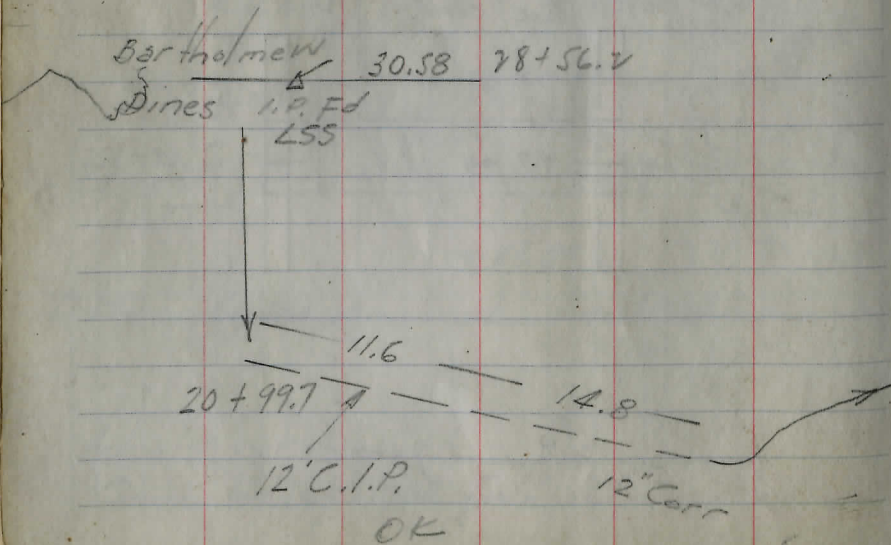 Bartholmew 30.58 28+56.2
&
Dines I.P. Fd
LSS
11.6
20+99.7 14.8
12" C.I.P. 12" Corr
OK